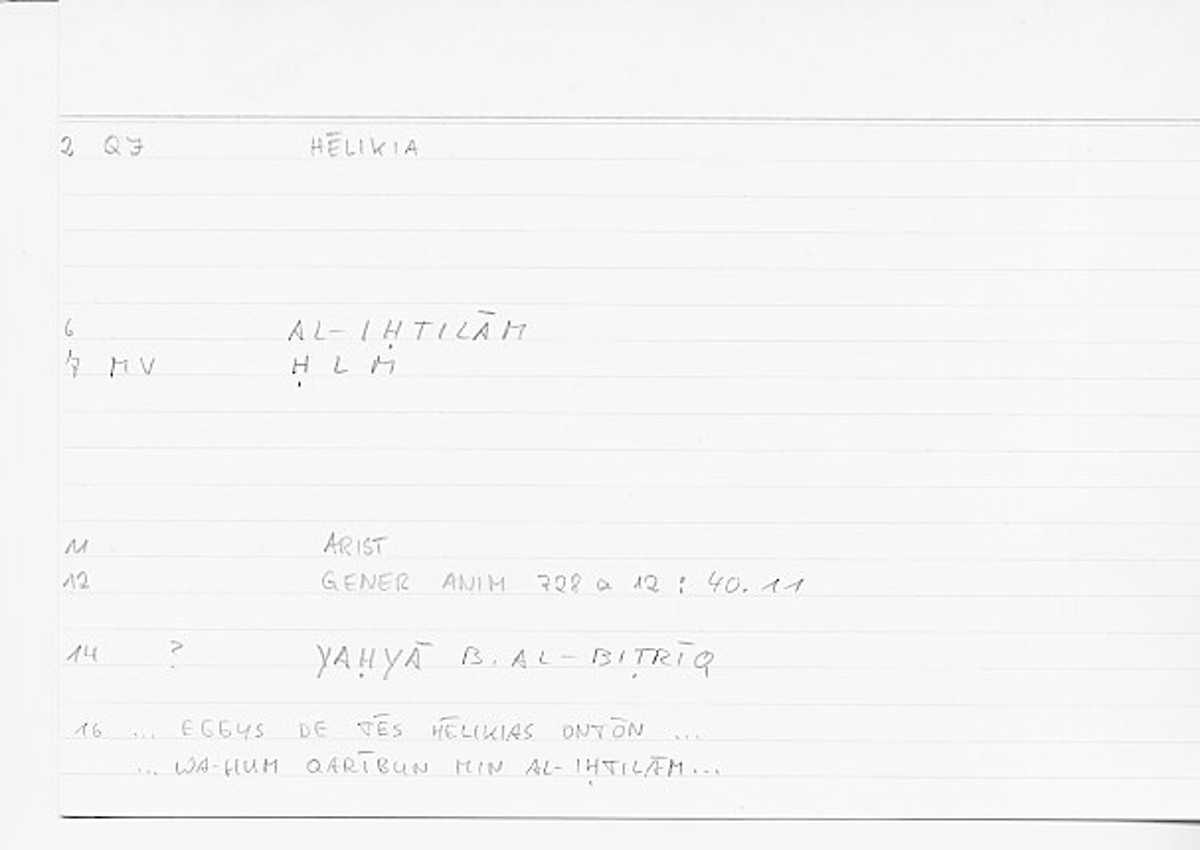 2 Q7 HĒLIKIA
6 AL-IḤTILĀM
7 MV ḤLM
11 ARIST
12 GENER ANIM 728 a 12 : 40.11
14 ? YAḤYĀ B. AL-BIṬRĪQ
16 ... EGGYS DE TĒS HĒLIKIAS ONTŌN ...
... WA-HUM QARĪBUN MIN AL-IḤTILĀM...